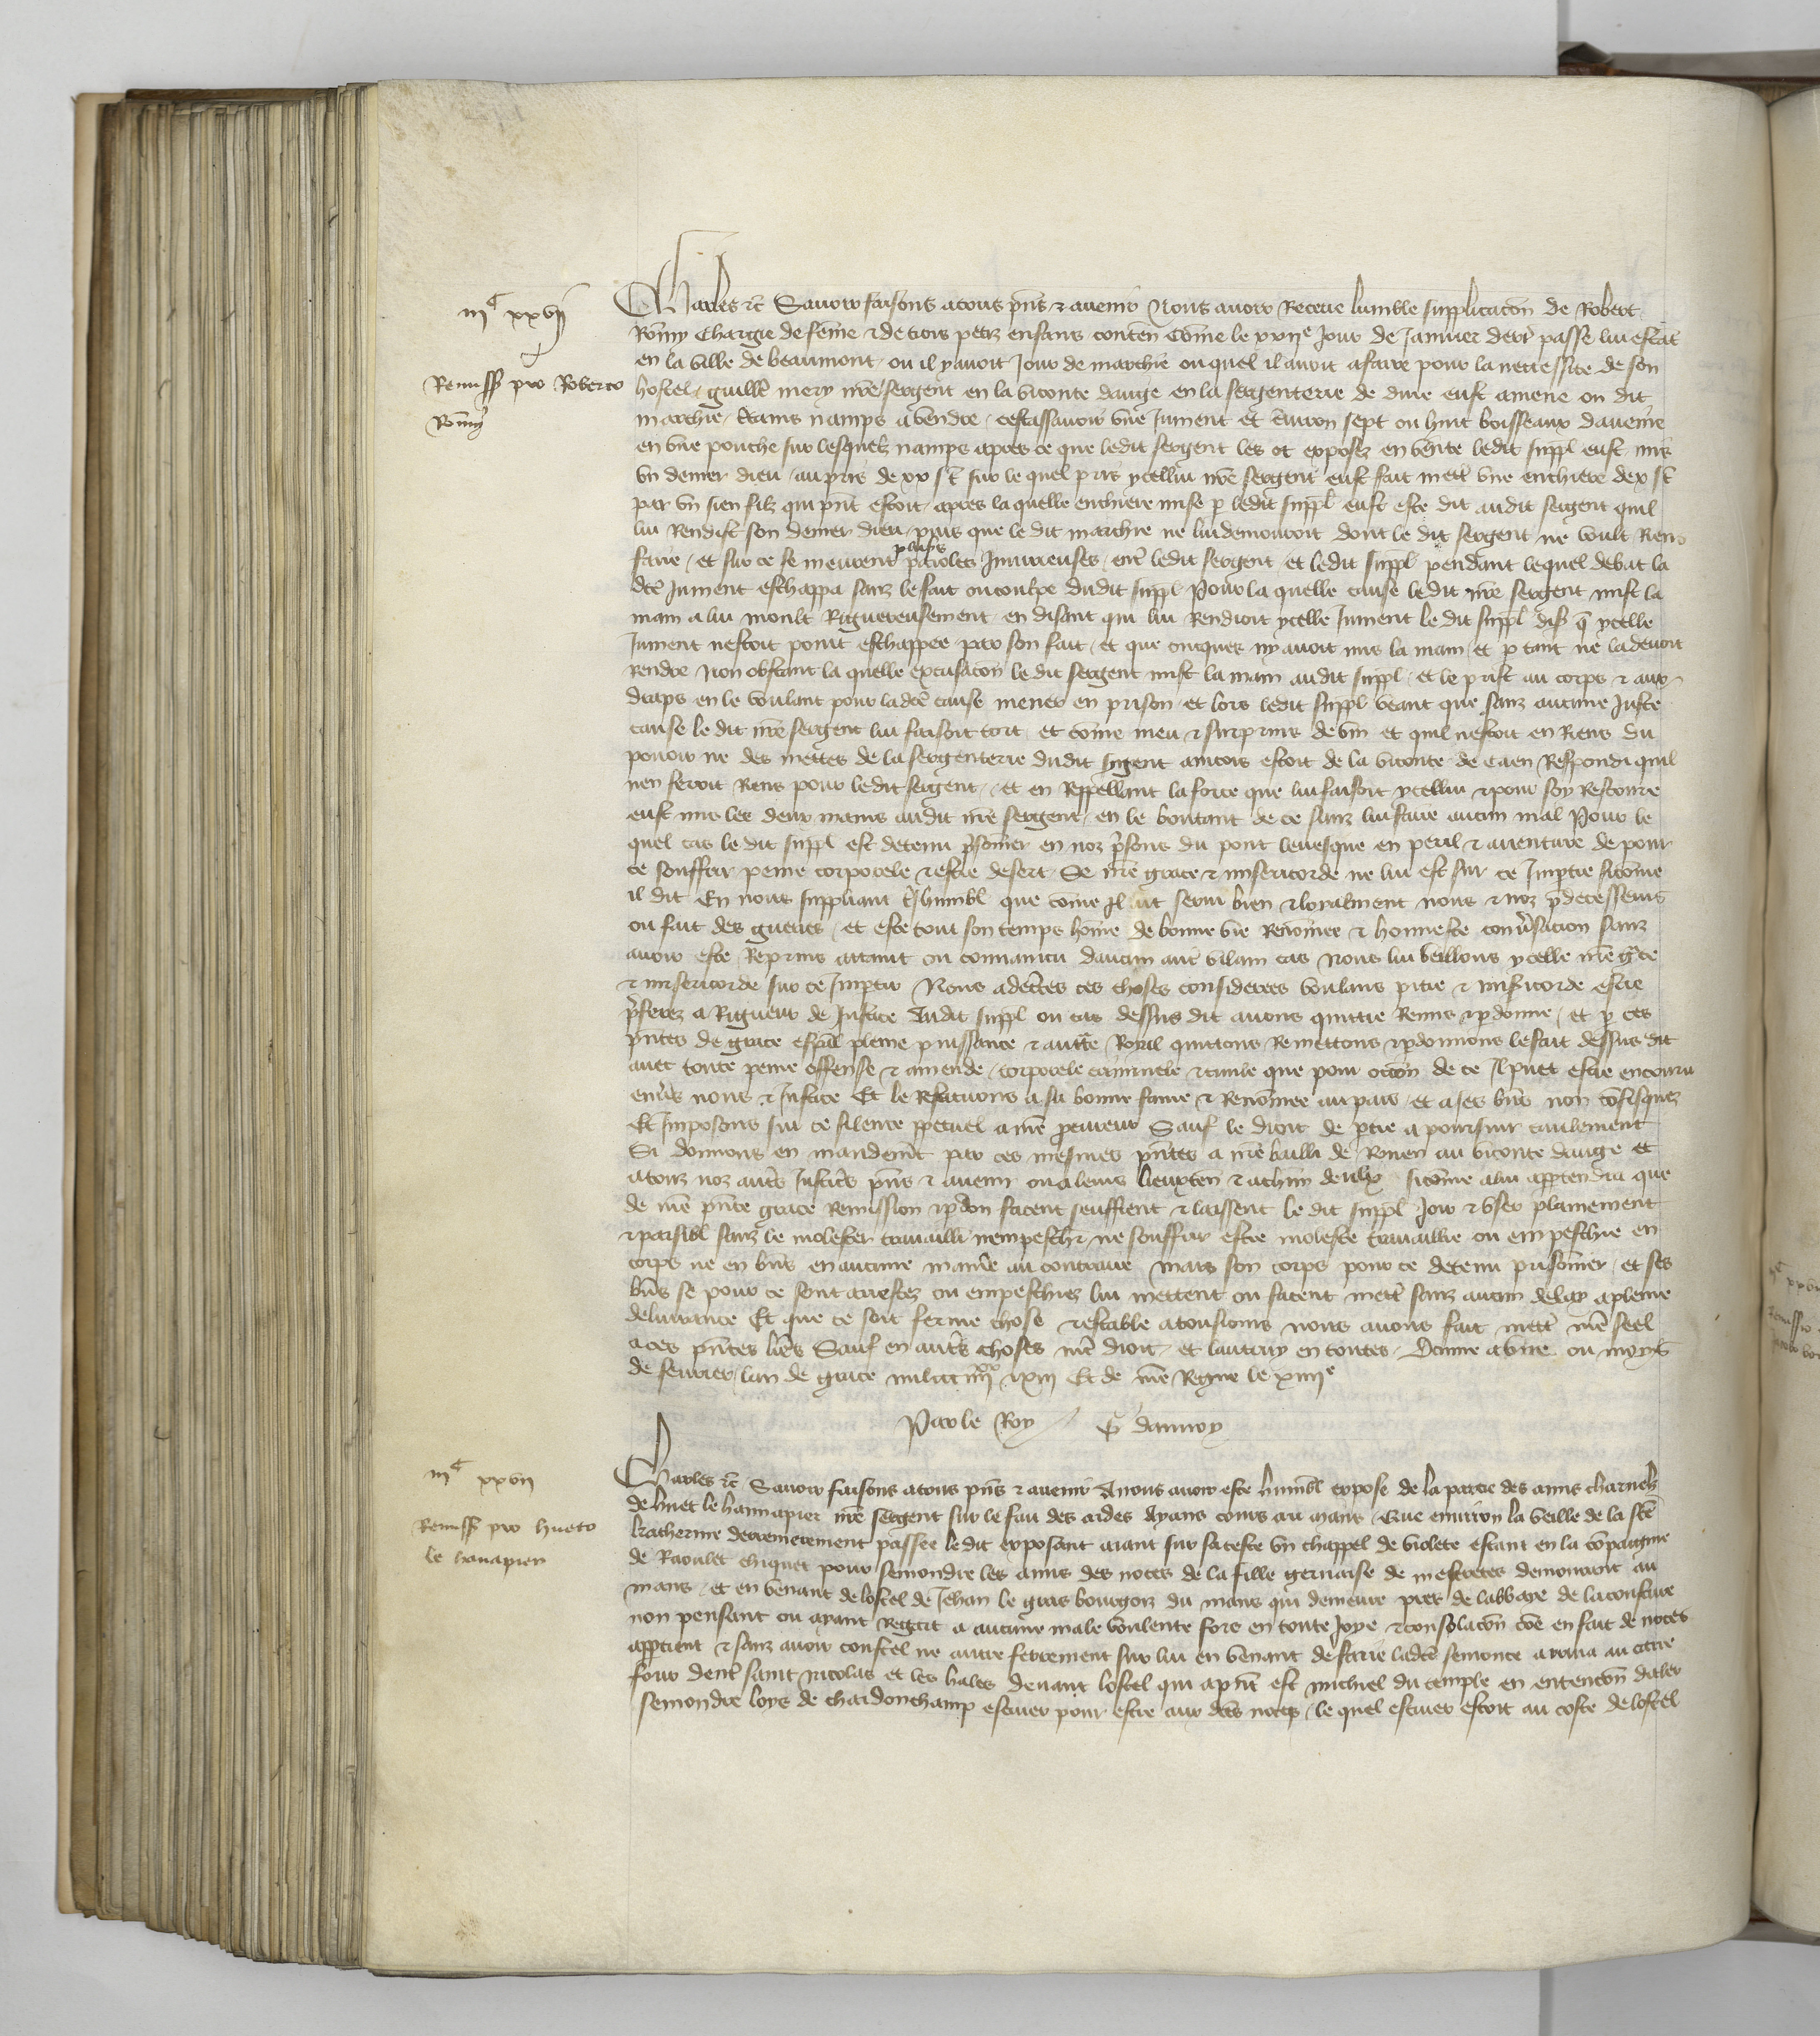 iiiᶜ xxvj
Remiss pro Roberto
Romy
Charles etc Savoir faisons a tous pñs & avenir Nous avoir Receue lumble supplicacoñ de Robert
Romy Chargie de feme & de trois petiz enfans conteñ Cõme le xxijᵉ Jour de Janvier derr̃ passe lui estãt
en la ville de beaumont ou il y avoit Jour de marchie ouquel il avoit a faire pour la neccessite de son
hostel / guillẽ mery nr̃e sergent en la viconte dauge en la sergenterie de dive eust amene ou dit
marchie / Certains namps a vendre / cestassavoir vne Jument et environ sept ou huit boisseaux daveine
en vne pouche sur lesquelz namps apres ce que ledit sergent les ot exposez en vente ledit suppl eust mis
vn denier dieu / au pris de xx s̃ sur le quel pris ycellui nr̃e sergent eust fait mett̃ vne enchiere de x s̃
par vn sien filz qui pñt estoit / apres la quelle enchiere mise p̱ ledit suppl eust este dit audit sergent quil
lui Rendist son denier dieu / puis que le dit marchie ne lui demouroit dont le dit sergent ne voult Riens
faire / et sur ce se meurent plusrs paroles Iniurieuses / entr̃ ledit sergent / et ledit suppl pendant lequel debat la
dc̃e Jument eschappa sanz le fait ou coulpe dudit suppl Pour la quelle cause le dit nr̃e sergent mist la
main a lui moult Rigueureusement / en disant qui lui Rendroit ycelle Jument le dit suppl dist q̃ ycelle
Jument nestoit point eschappee par son fait / et que oncques ny avoit mis la main / et p̱ tant ne la devoit
Rendre Non obstant la quelle excusacoñ le dit sergent mist la main audit suppl / et le prist au corps & aux
draps en le voulant pour ladc̃e cause mener en prison / et lors ledit suppl veant que sanz aucune Juste
cause le dit nr̃e sergent lui faisoit tort / et cõme meu & surprins de vin et quil nestoit en Riens du
povoir ne des mettes de la sergenterie dudit sergent aincois estoit de la viconte de Caen Respondi quil
nen feroit Riens pour ledit sergent / et en Reppellant la force que lui faisoit ycellui & pour soy Rescourre
eust mis les deux mains audit nr̃e sergent / en le boutant de ce sanz lui faire aucun mal Pour le
quel cas le dit suppl est detenu p̃sonnier en noz p̃sons du pont levesque en peril & aventure de pour
ce souffrir peine corporele & estre desert / Se nr̃e grace & misericorde ne lui est sur ce Impartie sicõme
il dit En nous suppliant tr̃shumbl que cõme Il ait servi bien & loyalment nous & noz p̃decesseurs
ou fait des guerres / et este tout son temps hõme de bonne vie Renõmee & honneste conũsacion sanz
avoir este Reprins attaint ou convaincu daucun autr̃ vilain cas Nous lui veillons ycelle nr̃e gr̃ce
& misericorde sur ce Impartir Nous adecertes ces choses considerees voulans pitie & misericorde estre
p̃ferez a Rigueur de Justice Audit suppl ou cas dessus dit avons quittie Remis & p̱donne / et p̱ ces
p̃ntes de grace esp̃al pleine puissance & auctte Royal quittons Remettons & p̱donnons le fait dessus dit
avec toute peine offense & amende / corporele criminele & civile que pour occoñ de ce Il puet estre encouru
env̱s nous & Justice Et le Restituons a sa bonne fame & Renõmee au pais / et a ses biñs non cõfisquez
Et Imposons sur ce silence p̱petuel a nr̃e p̱cureur Sauf le droit de p̱tie a poursuir civilement
Si donnons en mandemt̃ par ces mesmes p̃ntes a nr̃e bailli de Rouen au viconte dauge et
a touz noz autr̃s Justicrs̃ pñs & avenir ou a leurs lieuxteñ & a chũn deulx sicõme a lui app̱tendra que
de nr̃e p̃nte grace Remission & p̱don facent seuffrent & laissent le dit suppl Joir & vser plainement
& paisibl sanz le molester travaillr̃ nempeschr̃ ne souffrir estre moleste travaillie ou empeschie en
corps ne en biñs en aucune maniẽ au contraire / mais son corps pour ce detenu prisonnier / et ses
biñs se pour ce sont arrestez ou empeschiez lui mettent ou facent mett̃ sanz aucun delay a pleine
delivrance Et que ce soit ferme chose & estable a tousiours nous avons fait mett̃ nr̃e seel
a ces p̃ntes lr̃es Sauf en autr̃s choses nr̃e droit / et lautruy en toutes Donne a ou moys
de fevrier / lan de grace mil cccc iiiixx & xiii Et de nr̃e Regne le xiiiiᵉ
Par le Roy / G dannoy
iiiᶜ xxvii
Remiss pro hueto
le hanapier
Charles etc Savoir faisons a tous pñs & avenir A nous avoir este humbl expose de la partie des amis charnelz
de huet le hannapier nr̃e sergent sur le fait des aides ayans cours au mans Que environ la veille de la ste
katherine derrenierement passee ledit exposant aiant sur sa teste vn chappel de violete estant en la cõpaignie
de Raoulet chiquet pour semondre les amis des noces de la fille gervaise de mestretes demourant au
mans / et en venant de lostel de Jehan le gras bourgois du mans qui demeure pres de labbaye de la cousture
non pensant ou ayant Regart a aucune male voulente fors en toute Joye & consolacoñ cõe en fait de noces
app̱tient & sanz avoir coustel ne autre ferrement sur lui en venant de faire ladc̃e semonce arriva au carre
four dentr̃ saint nicolas et les hales devant lostel qui a p̃nt est michiel du temple en entencoñ daler
semondre loys de chardonchamp escuier pour estre aux dc̃es noces / le quel escuier estoit au coste de lostel